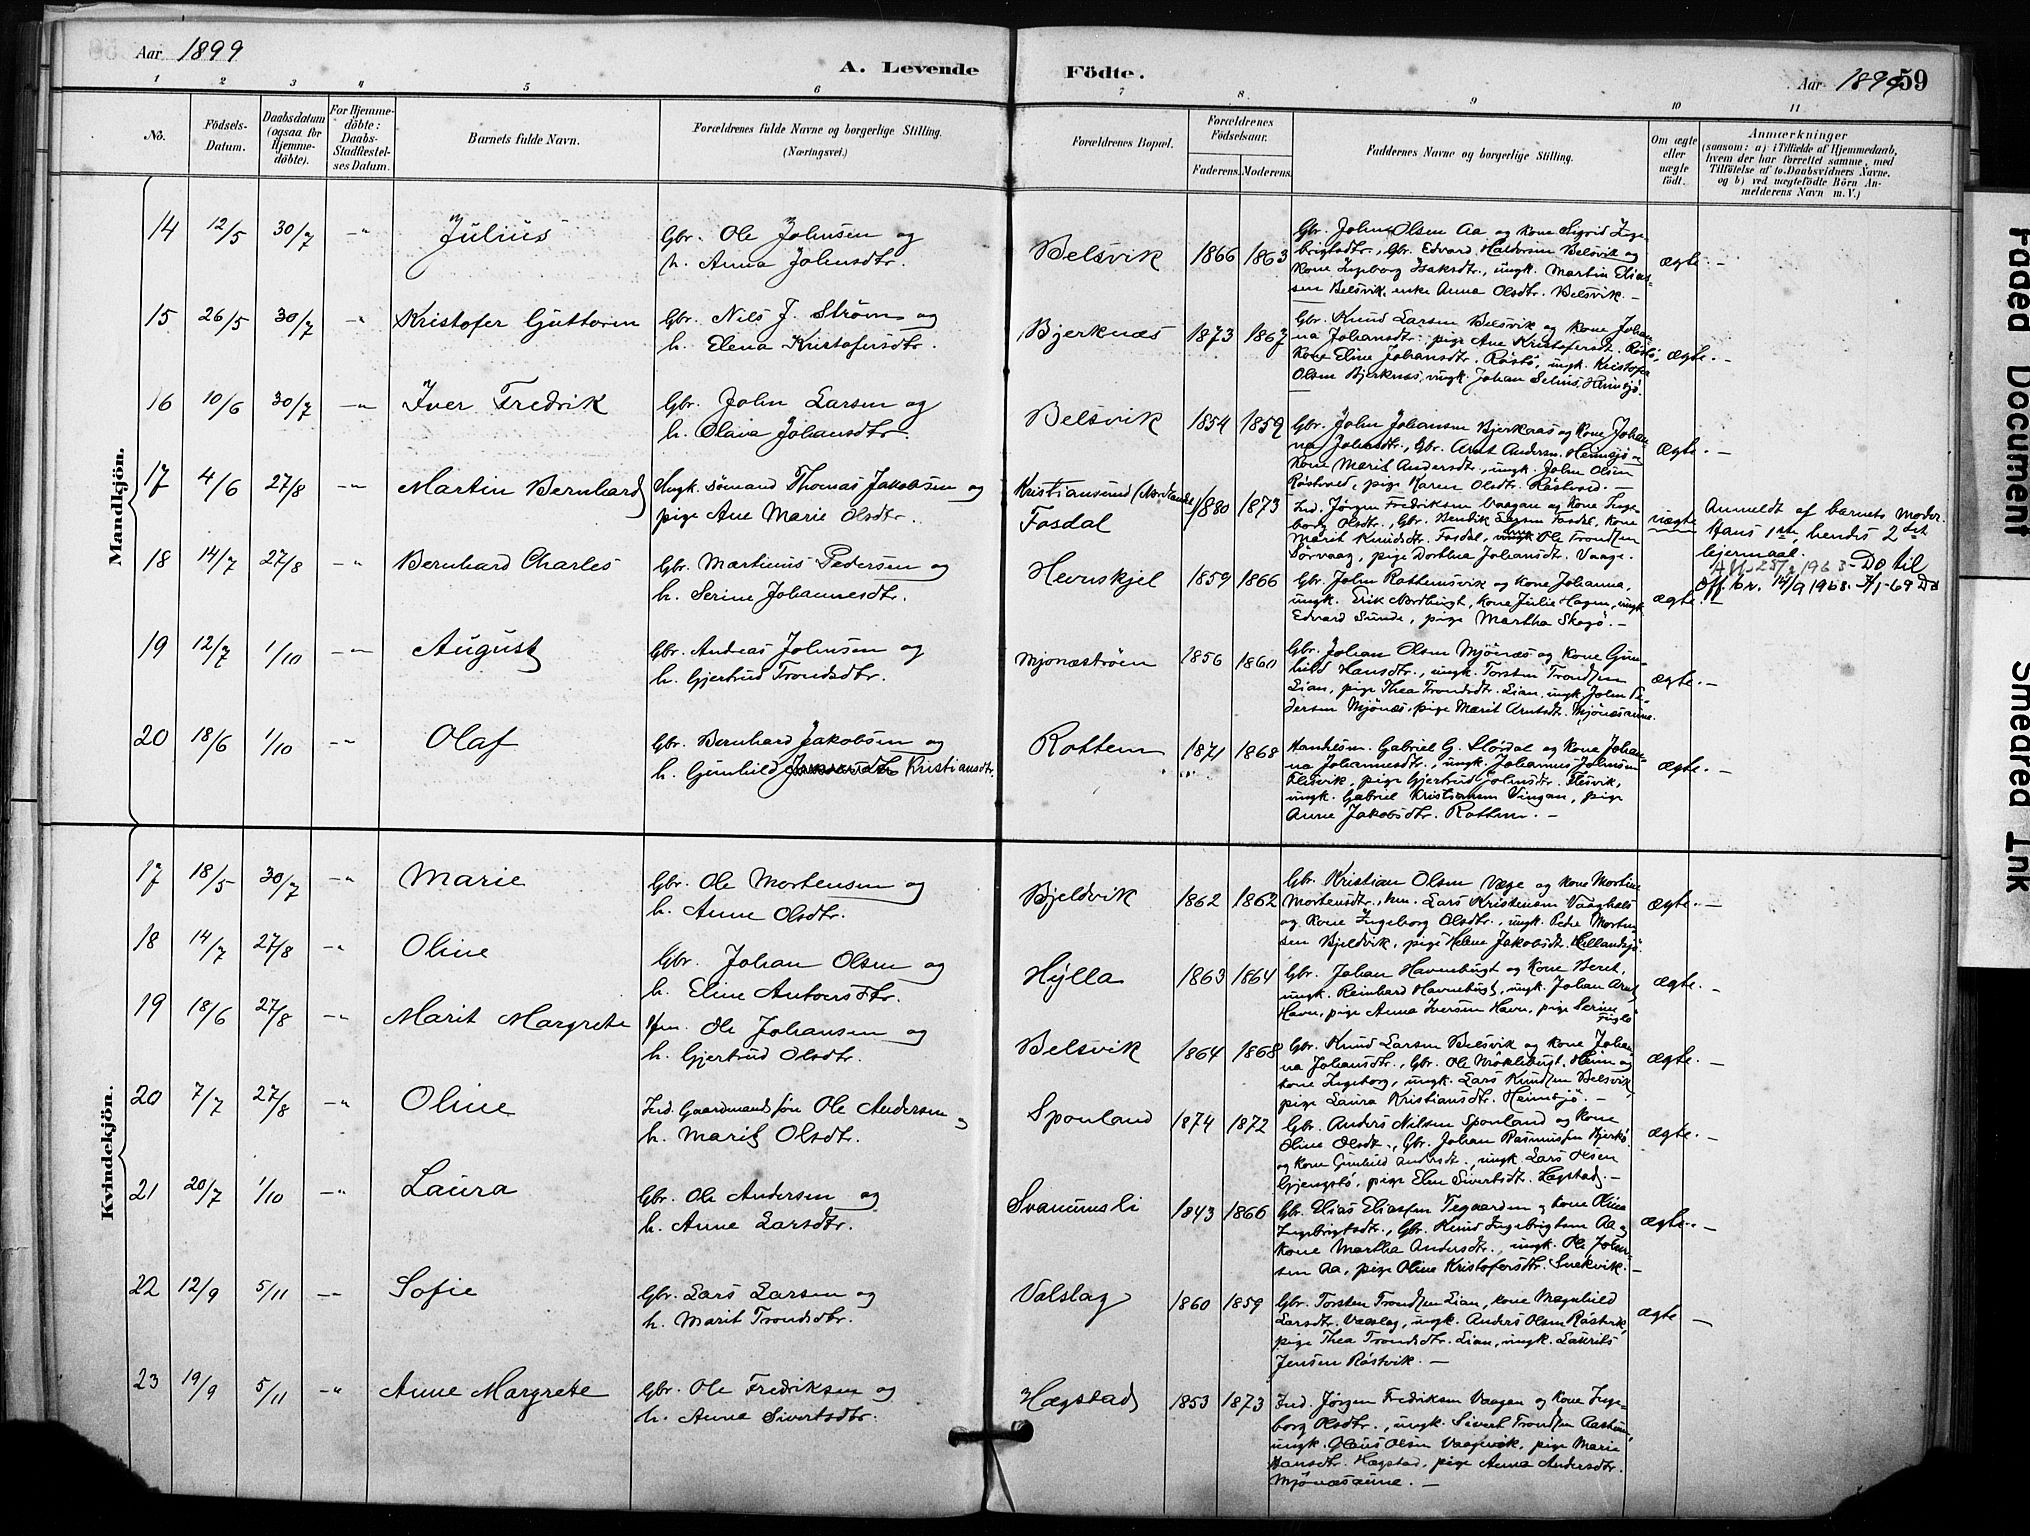 Aar 1899
A. Levende
Födte.
Aar 1899
59
1 2 3 4 5 6 7 8 9 10 11
No.
Födsels-
Datum.
Daabsdatum
(ogsaa for
Hjemme-
döbte).
For Hjemme-
döbte:
Daabs-
Stadfæstel-
ses Datum.
Barnets fulde Navn.
Forældrenes fulde Navne og borgerlige Stilling.
(Næringsvei.)
Forældrenes Bopæl.
Forældrenes
Födselsaar.
Faderens. Moderens.
Faddernes Navne og borgerlige Stilling.
Om ægte
eller
uægte
födt.
Anmærkninger
(saasom: a) i Tilfælde af Hjemmedaab,
hvem der har forrettet samme, med
Tilföielse af to Daabsvidners Navne,
og b) ved uægtefödte Börn An-
melderens Navn m. V.)
Mandkjön.
14 12/5 30/7 -"- Julius
Gbr. Ole Johnsen og
h. Anna Johnsdtr.
Belsvik 1866 1863
Gbr. John Olsen Aa og kone Sigrid Inge-
brigtsdtr., Gbr. Edvard Haldorsen Belsvik og
kone Ingeborg Isaksdtr., ungk. Martin Elias-
sen Belsvik, enke Anna Olsdtr. Belsvik. -
ægte. -
15 26/5 30/7 -"- Kristofer Guttorm
Gbr. Nils J. Ström og
h. Elena Kristofersdtr.
Bjerknæs 1873 1867
Gbr. Knud Larsen Belsvik og kone Johan-
na Johansdtr., pige Ane Kristofersdt. Röstö,
kone Eline Johansdtr. Röstö, ungk. Kristofer
Olsen Bjerknæs, ungk. Johan Selius Heimsjö.
ægte. -
16 10/6 30/7 -"- Iver Fredrik
Gbr. John Larsen og
h. Olava Johansdtr.
Belsvik 1854 1859
Gbr. John Johansen Bjerkaas og kone Johan
na Johnsdtr., Gbr. Arnt Andersen Heimsjö og
kone Marit Andersdtr., ungk. John Olsen
Röstved, pige Karen Olsdtr. Röstved. -
ægte. -
17 4/6 27/8 -"- Martin Bernhard
Ungk. sömand Thomas Jakobsen og
pige Ane Marie Olsdtr.
Kristiansund (Nordland)
Fosdal 1880 1873
Ind. Jörgen Fredriksen Vaagan og kone Inge-
borg Olsdtr., Gbr. Henrik Larsen Fosdal, kone
Marit Knudsdtr. Fosdal, Ole Trondsen
Sörvaag, pige Dorthea Johansdt. Vaage.
uægte
Anmeldt af barnets Moder.
Hans 1ste, hendes 2det
leiermaal.
18 14/7 27/8 -"- Bernhard Charles
Gbr. Martinus Pedersen og
h. Serine Johannesdtr.
Hevnskjel 1859 1866
Gbr. John Rottemsvik og kone Johanna,
ungk. Erik Nordbugt, kone Julie Hagen, ungk.
Edvard Sunde, pige Martha Skogö. -
ægte. -
1963 - Do til
12/9 1968. 3/1-69 Do
19 12/7 1/10 -"- August
Gbr. Andreas Johnsen og
h. Gjertrud Trondsdtr.
Mjonæströen 1856 1860
Gbr. Johan Olsen Mjönæs og kone Gun-
hild Hansdtr., ungk. Torsten Trondsen
Lian, pige Thea Trondsdtr. Lian, ungk. John Pe-
dersen Mjönæs, pige Marit Arntsdt. Mjönæsaune.
ægte. -
20 18/6 1/10 -"- Olaf
Gbr. Bernhard Jakobsen og
h. Gunhild Kristiansdtr.
Rottem 1871 1868
Handelsm. Gabriel G. Stördal og kone Johan-
na Johannesdtr., ungk. Johannes Johnsen
Flesvik, pige Gjertrud Johnsdtr. Flesvik,
ungk. Gabriel Kristiansen Vingan, pige
Anne Jakobsdtr. Rottem. -
ægte. -
Kvindekjön.
17 18/5 30/7 -"- Marie
Gbr. Ole Mortensen og
h. Anne Olsdtr.
Bjeldvik 1862 1862
Gbr. Kristian Olsen Væge og kone Mortine
Mortensdtr., hm. Lars Kristensen Vaaghals
og kone Ingeborg Olsdtr., ungk. Peder Morten-
sen Bjeldvik, pige Helene Jakobsdt. Hellandsjö.
ægte. -
18 14/7 27/8 -"- Oline
Gbr. Johan Olsen og
h. Eline Antonsdtr.
Hylla 1863 1864
Gbr. Johan Havnebugt og kone Beret,
ungk. Reinhard Havnebugt, ungk. Johan Arnt
Havn, pige Anna Iversen Havn, pige Serine
Fuglö
ægte. -
19 18/6 27/8 -"- Marit Margrete
Hm. Ole Johansen og
h. Gjertrud Olsdtr.
Belsvik 1864 1868
Gbr. Knud Larsen Belsvik og kone Johan-
na Johansdtr., Gbr. Ole Heim og
kone Ingeborg, ungk. Lars Knudsen Belsvik,
pige Laura Kristiansdtr. Heimsjö. -
ægte. -
20 7/7 27/8 -"- Oline
Ind. Gaardmandssön Ole Andersen og
h. Marit Olsdtr.
Sponland 1874 1872
Gbr. Anders Nilsen Sponland og kone
Oline Olsdt., Gbr. Johan Rasmussen Bjerkö
og kone Gunhild Andersdt., ungk. Lars Olsen
Gjengstö, pige Elen Sivertsdt. Hægstad. -
ægte. -
21 20/7 1/10 -"- Laura
Gbr. Ole Andersen og
h. Anne Larsdtr.
Svanumsli 1843 1866
Gbr. Elias Eliassen Tegaarden og kone Oline
Ingebrigtsdtr., Gbr. Knud Ingebrigtsen Aa og
kone Martha Andersdtr., ungk. Ole John-
sen Aa, pige Oline Kristofersdtr. Snekvik. -
ægte. -
22 12/9 5/11 -"- Sofie
Gbr. Lars Larsen og
h. Marit Trondsdtr.
Valslag 1860 1859
Gbr. Torsten Trondsen Lian, kone Magnhild
Larsdtr. Vaslag, ungk. Anders Olsen Röstvik,
pige Thea Trondsdtr. Lian, ungk. Laurits
Jensen Röstvik. -
ægte -
23 19/9 5/11 -"- Anne Margrete
Gbr. Ole Fredriksen og
h. Anne Sivertsdtr.
Hægstad 1853 1873
Ind. Jörgen Fredriksen Vaagan og kone Inge-
borg Olsdtr., ungk. Sivert Trondsen Aastum,
ungk. Olaus Olsen Vaagevik, pige Marie
Hansdtr. Hægstad, pige Anna Andersdtr.
Mjönæsaune. -
Faded Document
Smeared Ink